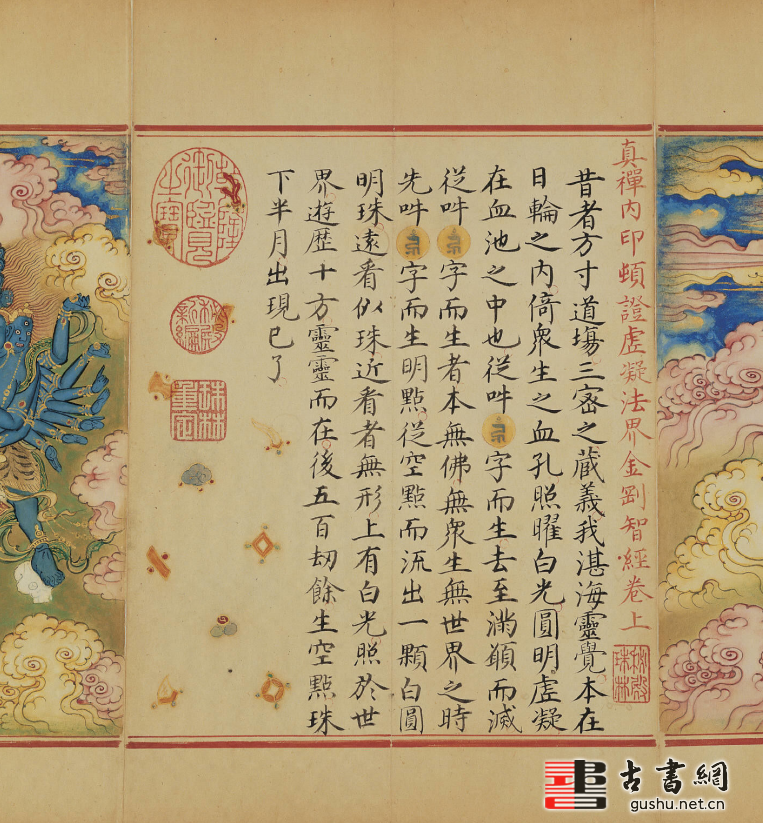 真禪內印頓證虛凝法界金剛智經卷上
秘殿珠林
昔者方寸道場三密之藏義我湛海靈覺本在
日輪之內倚眾生之血孔照曜白光圓明虛凝
在血池之中也從吽字而生去至滿頞而滅
從吽字而生者本無佛無眾生無世界之時
先吽字而生明點從空點而流出一顆白圓
明珠遠看似珠近看者無形上有白光照於世
界遊歷十方靈靈而在後五百劫餘生空點珠
下半月出現已了
乾隆御覽之寶
秘殿新編
珠林重定
古書網
gushu.net.cn